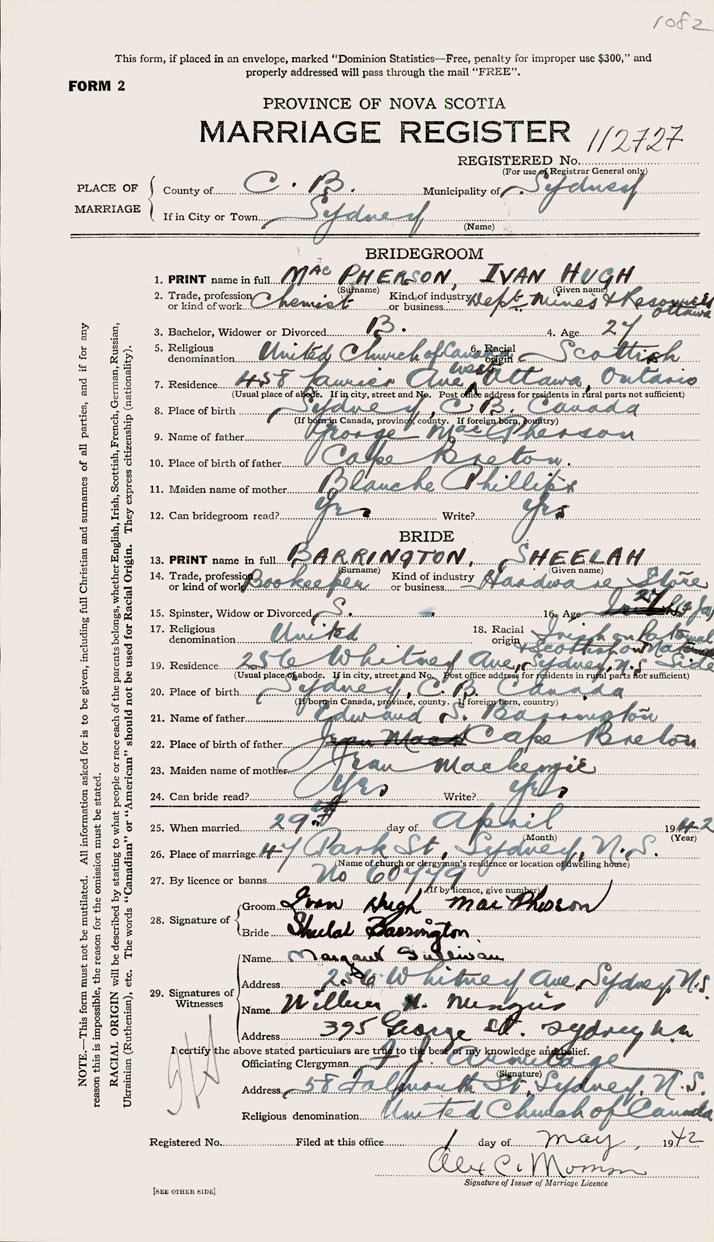 1082
This form, if placed in an envelope, marked "Dominion Statistics—Free, penalty for improper use $300," and
properly addressed will pass through the mail "FREE".
FORM 2
PROVINCE OF NOVA SCOTIA
MARRIAGE REGISTER
REGISTERED No. 112727
(For use of Registrar General only)
PLACE OF MARRIAGE
County of C. B. Municipality of Sydney
If in City or Town Sydney
(Name)
BRIDEGROOM
1. PRINT name in full MacPHERSON, IVAN HUGH
(Surname) (Given name)
2. Trade, profession or kind of work Chemist Kind of industry or business Dept. Mines & Resources Ottawa
3. Bachelor, Widower or Divorced B. 4. Age 27
5. Religious denomination United Church of Canada 6. Racial origin Scottish
7. Residence 458 Laurier Ave West, Ottawa, Ontario
(Usual place of abode. If in city, street and No. Post office address for residents in rural parts not sufficient)
8. Place of birth Sydney, C. B. Canada
(If born in Canada, province, county. If foreign born, country)
9. Name of father George MacPherson
10. Place of birth of father Cape Breton.
11. Maiden name of mother Blanche Phillips
12. Can bridegroom read? Yes Write? Yes
BRIDE
13. PRINT name in full BARRINGTON, SHEELAH
(Surname) (Given name)
14. Trade, profession or kind of work Bookeeper Kind of industry or business Hardware Store
15. Spinster, Widow or Divorced S. 16. Age 27
17. Religious denomination United 18. Racial origin Irish on Paternal
Scottish on Maternal Side
19. Residence 256 Whitney Ave, Sydney, N.S.
(Usual place of abode. If in city, street and No. Post office address for residents in rural parts not sufficient)
20. Place of birth Sydney, C. B. Canada
(If born in Canada, province, county. If foreign born, country)
21. Name of father Edward S. Barrington
22. Place of birth of father Cape Breton
23. Maiden name of mother Jean Mackenzie
24. Can bride read? Yes Write? Yes
25. When married 29th day of April 1942
(Month) (Year)
26. Place of marriage 47 Park St, Sydney, N.S.
(Name of church or clergyman's residence or location of dwelling house)
27. By licence or banns No 60779
(If by licence, give number)
28. Signature of
Groom Ivan Hugh MacPherson
Bride Sheelah Barrington
29. Signatures of Witnesses
Name Margaret Sullivan
Address 256 Whitney Ave, Sydney, N.S.
Name
Address 395 George St. Sydney N.S.
I certify the above stated particulars are true to the best of my knowledge and belief.
Officiating Clergyman F. J. Armitage
(Signature)
Address 58 Falmouth St, Sydney, N.S.
Religious denomination United Church of Canada
Registered No. Filed at this office 1 day of May, 1942
Signature of Issuer of Marriage Licence
[SEE OTHER SIDE]
NOTE.—This form must not be mutilated. All information asked for is to be given, including full Christian and surnames of all parties, and if for any
reason this is impossible, the reason for the omission must be stated.
RACIAL ORIGIN will be described by stating to what people or race each of the parents belongs, whether English, Irish, Scottish, French, German, Russian,
Ukrainian (Ruthenian), etc. The words "Canadian" or "American" should not be used for Racial Origin. They express citizenship (nationality).